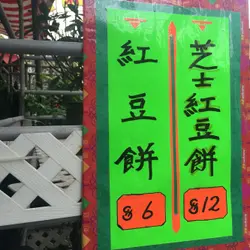 芝士紅豆餅
$12
紅豆餅
$6